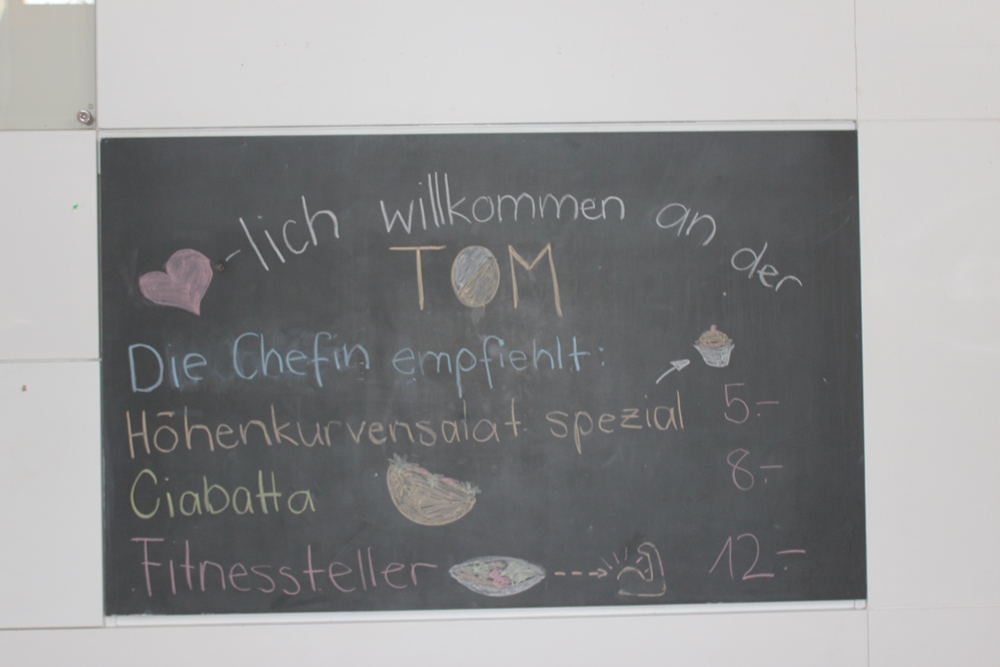 -lich willkommen an der
TOM
Die Chefin empfiehlt:
Höhenkurvensalat spezial 5.-
Ciabatta 8.-
Fitnessteller 12.-